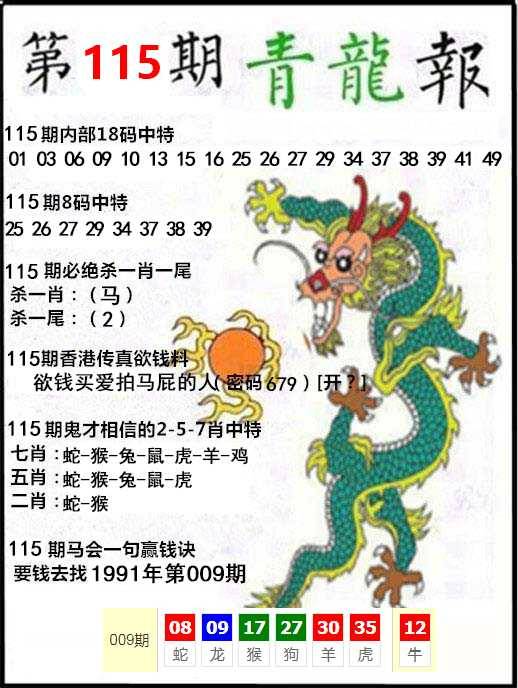 第115期青龍報
115期内部18码中特
01 03 06 09 10 13 15 16 25 26 27 29 34 37 38 39 41 49
115期8码中特
25 26 27 29 34 37 38 39
115 期必绝杀一肖一尾
杀一肖：（马）
杀一尾：（2）
115期香港传真欲钱料
欲钱买爱拍马屁的人(密码679)[开？]
115期鬼才相信的2-5-7肖中特
七肖：蛇-猴-兔-鼠-虎-羊-鸡
五肖：蛇-猴-兔-鼠-虎
二肖：蛇-猴
115 期马会一句赢钱诀
要钱去找1991年第009期
009期 08 09 17 27 30 35 12
蛇 龙 猴 狗 羊 虎 牛